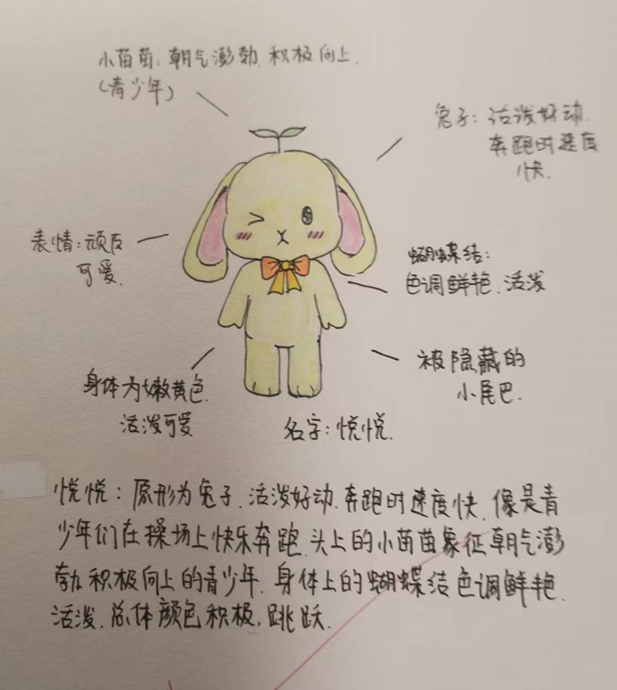 小苗苗:朝气澎勃.积极向上.
(青少年)
兔子:活泼好动.
奔跑时速度
快.
表情:顽皮
可爱.
蝴蝶结:
色调鲜艳.活泼
身体为嫩黄色.
活泼可爱
被隐藏的
小尾巴.
名字:悦悦.
悦悦:原形为兔子.活泼好动.奔跑时速度快.像是青
少年们在操场上快乐奔跑.头上的小苗苗象征朝气澎
勃.积极向上的青少年.身体上的蝴蝶结色调鲜艳.
活泼.总体颜色积极.跳跃.